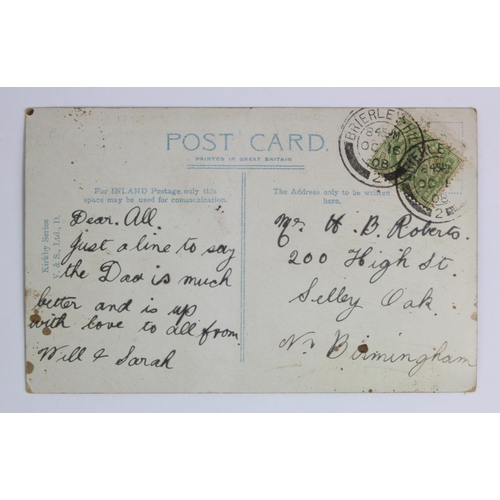 POST CARD.
PRINTED IN GREAT BRITAIN
For INLAND Postage only this
space may be used for communication.
The Address only to be written
here.
Kirkby Series
V. & S., Ltd., D.
BRIERLEY HILL
8 45 AM
OC 16
08
2
Dear. All
Just a line to say
the Dad is much
better and is up
with love to all from
Will & Sarah
Mr H. B. Roberts.
200 High St.
Selley Oak.
Nr Birmingham